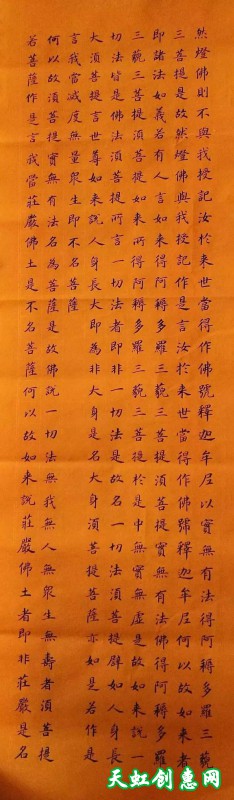 然燈佛則不與我授記汝於來世當得作佛號釋迦牟尼以實無有法得阿耨多羅三藐
三菩提是故然燈佛與我授記作是言汝於來世當得作佛號釋迦牟尼何以故如來者
即諸法如義若有人言如來得阿耨多羅三藐三菩提須菩提實無有法佛得阿耨多羅
三藐三菩提須菩提如來所得阿耨多羅三藐三菩提於是中無實無虛是故如來說一
切法皆是佛法須菩提所言一切法者即非一切法是故名一切法須菩提譬如人身長
大須菩提言世尊如來說人身長大即為非大身是名大身須菩提菩薩亦如是若作是
言我當滅度無量眾生即不名菩薩
何以故須菩提實無有法名為菩薩是故佛說一切法無我無人無眾生無壽者須菩提
若菩薩作是言我當莊嚴佛土是不名菩薩何以故如來說莊嚴佛土者即非莊嚴是名
天虹创惠网